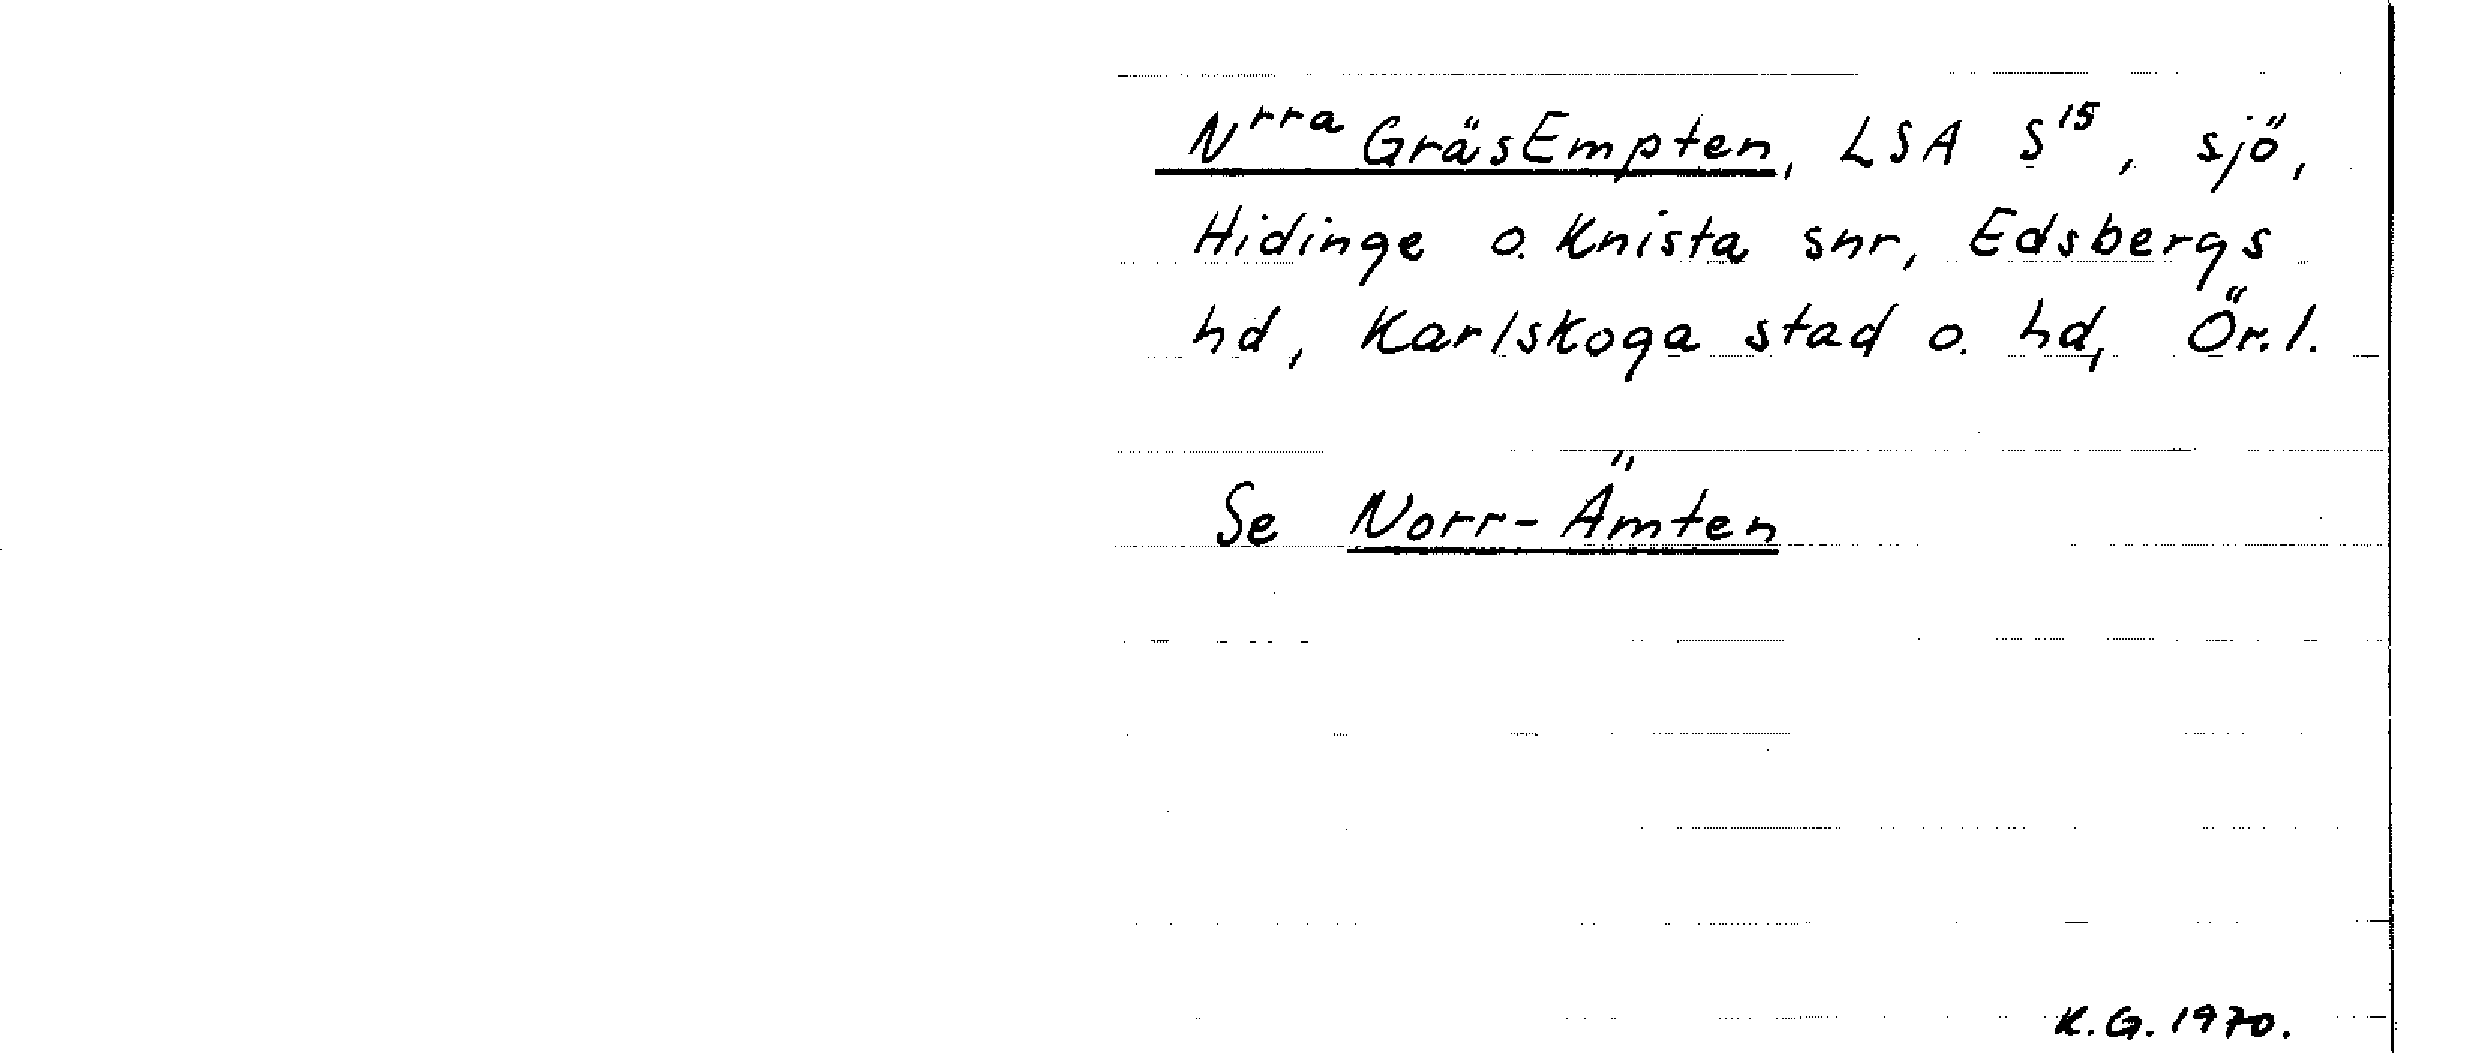 Nrra GräsEmpten, LSA S15, sjö,
Hidinge o. Knista snr, Edsbergs
hd, Karlskoga stad o. hd, Ör. l.
Se Norr-Ämten
K.G. 1970.